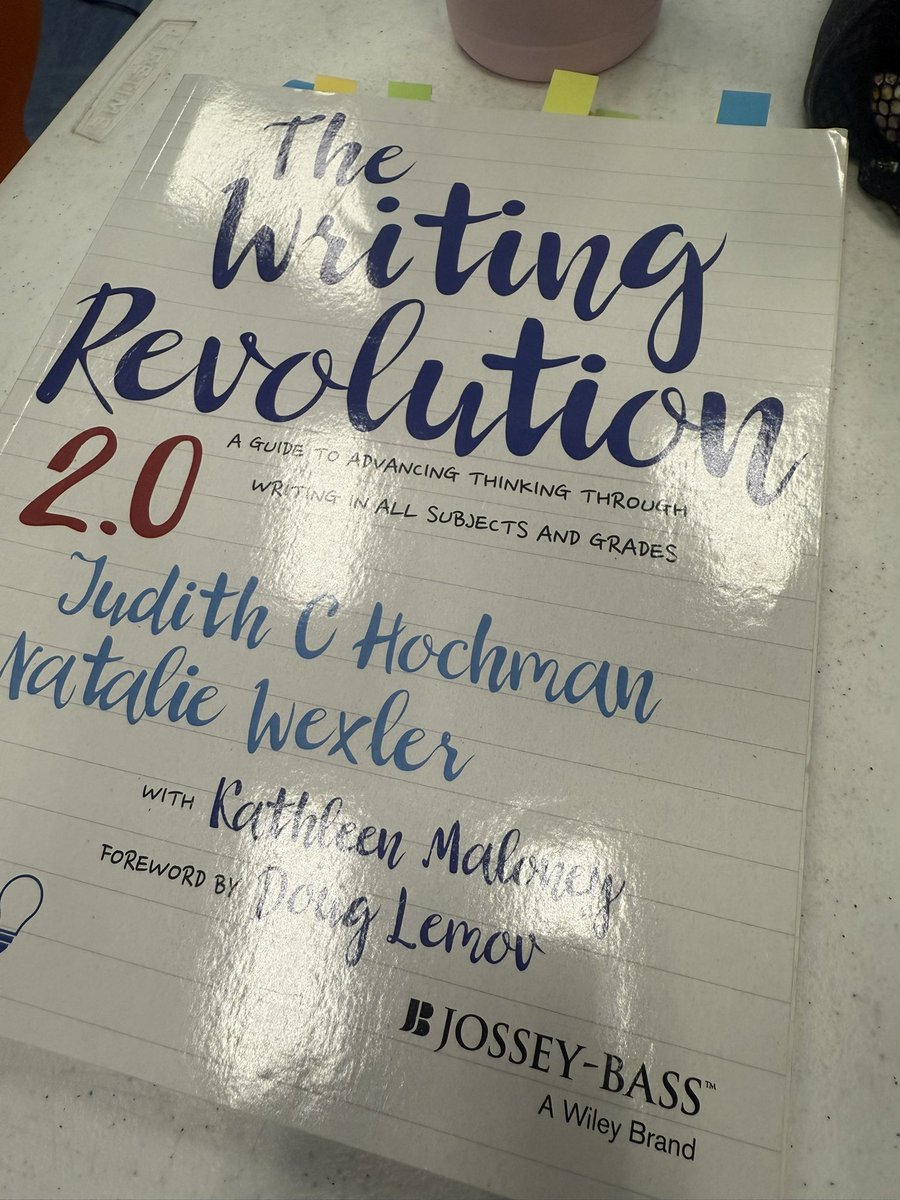 The
Writing
Revolution
2.0
A GUIDE TO ADVANCING THINKING THROUGH
WRITING IN ALL SUBJECTS AND GRADES
Judith C Hochman
Natalie Wexler
WITH Kathleen Maloney
FOREWORD BY Doug Lemov
JB JOSSEY-BASS™
A Wiley Brand